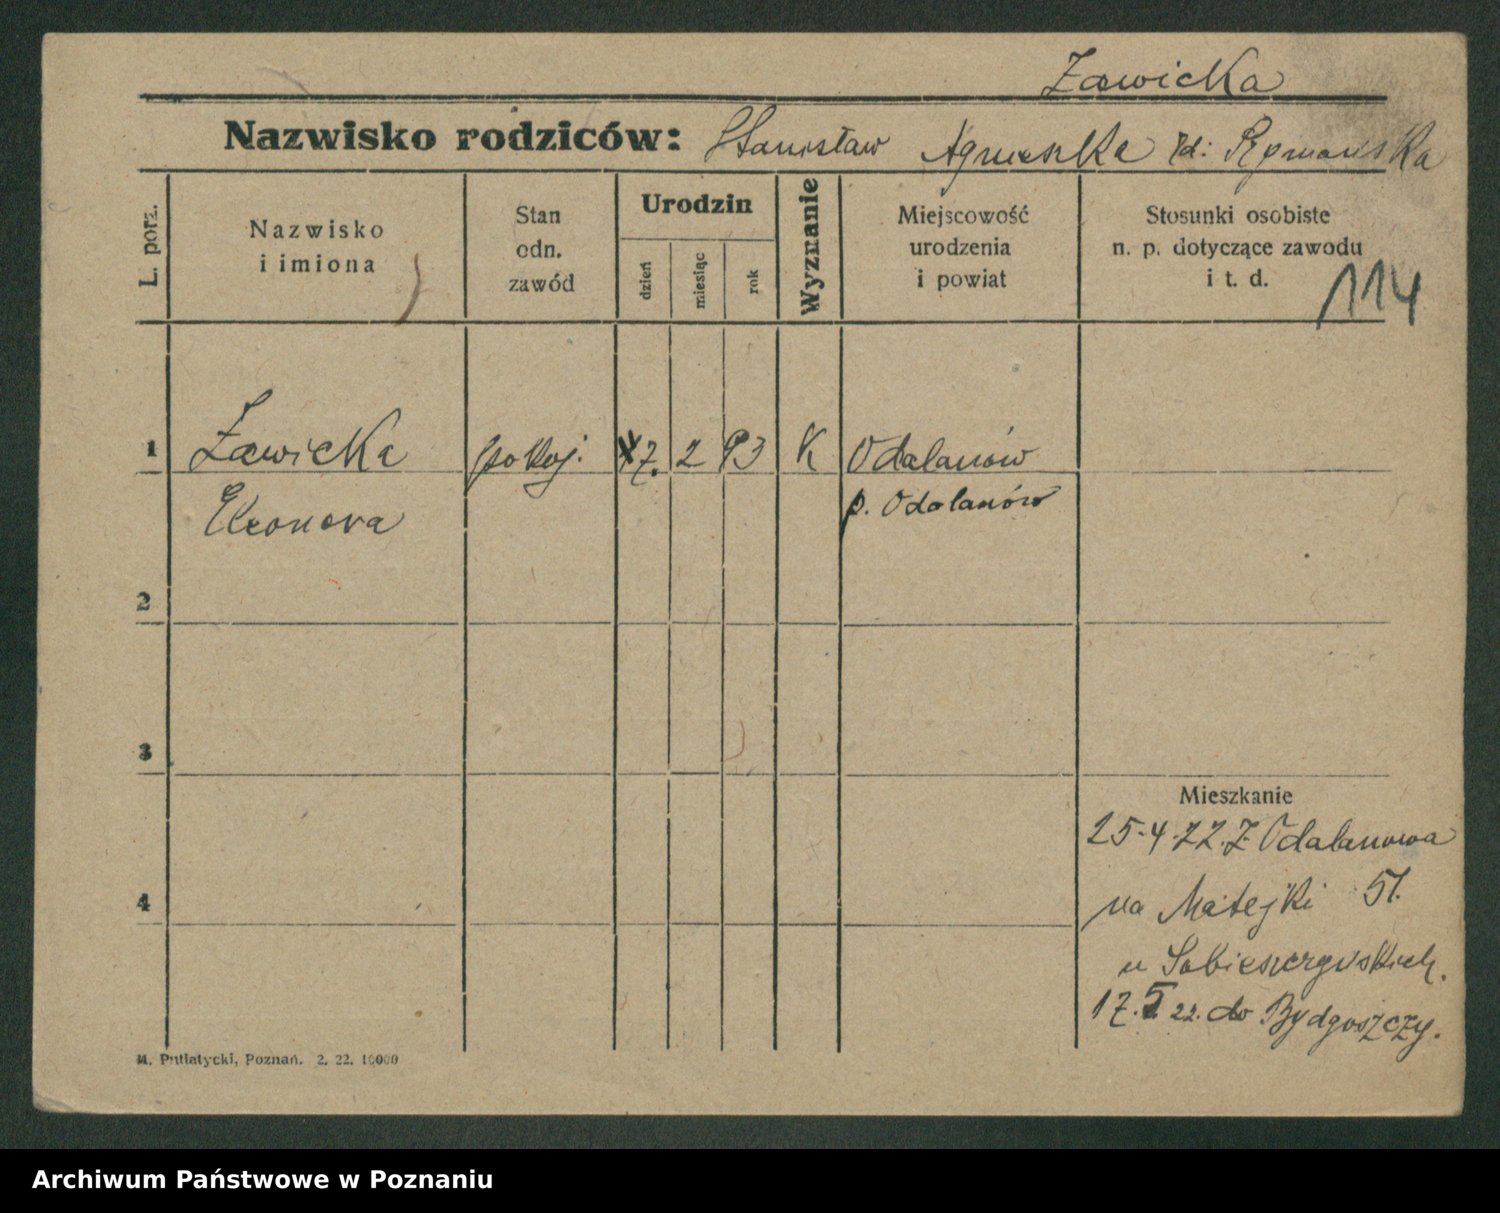 Zawicka
Nazwisko rodziców: Stanisław Agnieszka
L. porz.
Nazwisko
i imiona
Stan
odn.
zawód
Urodzin
dzień
miesiąc
rok
Wyznanie
Miejscowość
urodzenia
i powiat
Stosunki osobiste
n. p. dotyczące zawodu
i t. d.
114
1 Zawicka pokoj. 7. 2 93 K Odalanów
Eleonora p. Odolanów
2
3
4
Mieszkanie
25-4-22. Z Odalanowa
na Matejki 51.
u Sobieszczyńskich.
17.5 22. do Bydgoszczy.
M. Putiatycki, Poznań. 2. 22. 10000
Archiwum Państwowe w Poznaniu